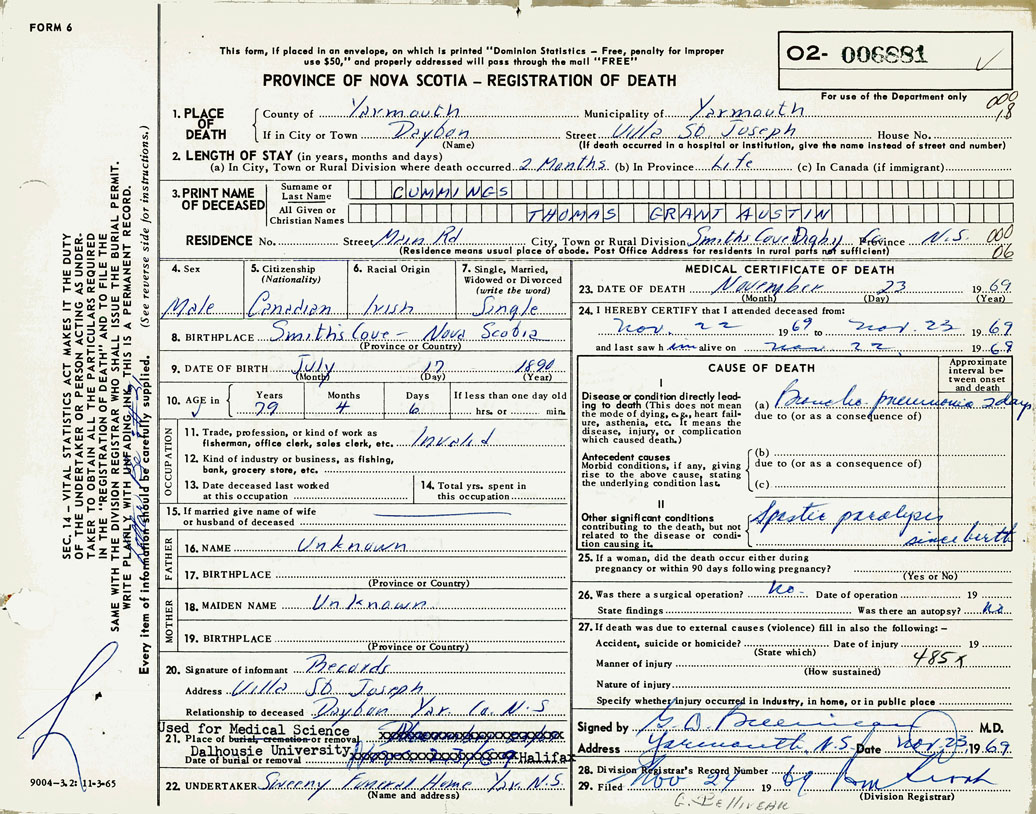 FORM 6
This form, if placed in an envelope, on which is printed "Dominion Statistics – Free, penalty for improper
use $50," and properly addressed will pass through the mail "FREE"
PROVINCE OF NOVA SCOTIA – REGISTRATION OF DEATH
02- 006881
For use of the Department only
000
18
1. PLACE OF DEATH County of Yarmouth Municipality of Yarmouth
If in City or Town Dayton Street Villa St Joseph House No.
(Name) (If death occurred in a hospital or institution, give the name instead of street and number)
2. LENGTH OF STAY (in years, months and days)
(a) In City, Town or Rural Division where death occurred 2 Months (b) In Province Life (c) In Canada (if immigrant)
3. PRINT NAME OF DECEASED Surname or Last Name CUMMINGS
All Given or Christian Names THOMAS GRANT AUSTIN
RESIDENCE No. Street Main Rd City, Town or Rural Division Smiths Cove Digby Co Province N.S. 000
(Residence means usual place of abode. Post Office Address for residents in rural parts not sufficient) 06
4. Sex
Male
5. Citizenship
(Nationality)
Canadian
6. Racial Origin
Irish
7. Single, Married,
Widowed or Divorced
(write the word)
Single
8. BIRTHPLACE Smiths Cove – Nova Scotia
(Province or Country)
9. DATE OF BIRTH July 17 1890
(Month) (Day) (Year)
10. AGE in Years Months Days If less than one day old
79 4 6 hrs. or min.
OCCUPATION
11. Trade, profession, or kind of work as
fisherman, office clerk, sales clerk, etc. Invalid
12. Kind of industry or business, as fishing,
bank, grocery store, etc.
13. Date deceased last worked
at this occupation
14. Total yrs. spent in
this occupation
15. If married give name of wife
or husband of deceased
FATHER
16. NAME Unknown
17. BIRTHPLACE
(Province or Country)
MOTHER
18. MAIDEN NAME Unknown
19. BIRTHPLACE
(Province or Country)
20. Signature of informant Records
Address Villa St Joseph
Relationship to deceased Dayton Yar. Co. N.S
Used for Medical Science
21. Place of burial, cremation or removal
Dalhousie University, Halifax
Date of burial or removal
22. UNDERTAKER Sweeny Funeral Home Yar. N.S.
(Name and address)
MEDICAL CERTIFICATE OF DEATH
23. DATE OF DEATH November 23 1969
(Month) (Day) (Year)
24. I HEREBY CERTIFY that I attended deceased from:
Nov. 22 1969 to Nov. 23 1969
and last saw him alive on Nov 22, 1969
CAUSE OF DEATH
Approximate
interval be-
tween onset
and death
I
Disease or condition directly lead-
ing to death (This does not mean
the mode of dying, e.g., heart fail-
ure, asthenia, etc. It means the
disease, injury, or complication
which caused death.)
(a) Broncho pneumonia 2 days
due to (or as a consequence of)
Antecedent causes
Morbid conditions, if any, giving
rise to the above cause, stating
the underlying condition last.
(b)
due to (or as a consequence of)
(c)
II
Other significant conditions
contributing to the death, but not
related to the disease or condi-
tion causing it.
Spastic paralysis
since birth
25. If a woman, did the death occur either during
pregnancy or within 90 days following pregnancy?
(Yes or No)
26. Was there a surgical operation? No- Date of operation 19
State findings Was there an autopsy? No
27. If death was due to external causes (violence) fill in also the following: –
Accident, suicide or homicide? Date of injury 19
(State which)
Manner of injury 485x
(How sustained)
Nature of injury
Specify whether injury occurred in industry, in home, or in public place
Signed by M.D.
Address Yarmouth, N.S. Date Nov. 23 1969
28. Division Registrar's Record Number
29. Filed Nov 24 1969
(Division Registrar)
G. BELLIVEAU
SEC. 14 – VITAL STATISTICS ACT MAKES IT THE DUTY
OF THE UNDERTAKER OR PERSON ACTING AS UNDER-
TAKER TO OBTAIN ALL THE PARTICULARS REQUIRED
IN THE "REGISTRATION OF DEATH" AND TO FILE THE
SAME WITH THE DIVISION REGISTRAR WHO SHALL ISSUE THE BURIAL PERMIT.
WRITE PLAINLY, WITH UNFADING INK, THIS IS A PERMANENT RECORD.
Every item of information should be carefully supplied. (See reverse side for instructions.)
9004–3.2: 11-3-65